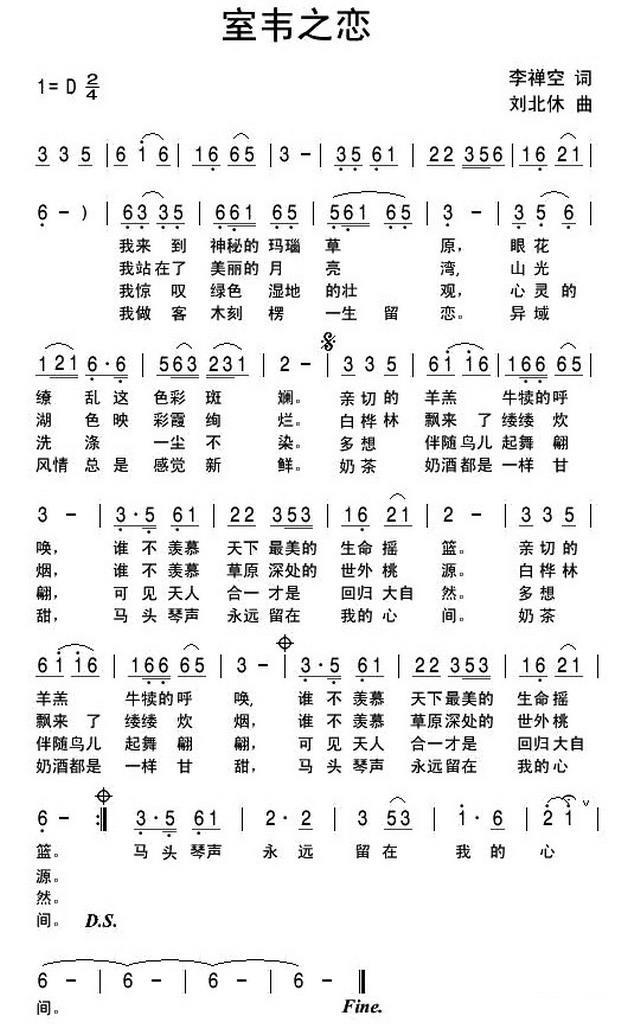 室韦之恋
1=D 2/4
李禅空 词
刘北休 曲
3 3 5 | 6 i 6 | 1 6 6 5 | 3 - | 3 5 6 1 | 2 2 3 5 6 | 1 6 2 1 |
6 - ) | 6 3 3 5 | 6 6 1 6 5 | 5 6 1 6 5 | 3 - | 3 5 6 |
我来 到 神秘的 玛瑙 草 原， 眼花
我站在了 美丽的 月 亮 湾， 山光
我惊 叹 绿色 湿地 的壮 观， 心灵的
我做 客 木刻 楞 一生 留 恋。 异域
1 2 1 6 · 6 | 5 6 3 2 3 1 | 2 - | 3 3 5 | 6 i i 6 | 1 6 6 6 5 |
缭 乱 这 色彩 斑 斓。 亲切的 羊羔 牛犊的呼
湖 色 映 彩霞 绚 烂。 白桦林 飘来 了 缕缕 炊
洗 涤 一尘 不 染。 多想 伴随鸟儿 起舞 翩
风情 总 是 感觉 新 鲜。 奶茶 奶酒都是 一样 甘
3 - | 3 · 5 6 1 | 2 2 3 5 3 | 1 6 2 1 | 2 - | 3 3 5 |
唤， 谁 不 羡慕 天下 最美的 生命 摇 篮。 亲切的
烟， 谁 不 羡慕 草原 深处的 世外 桃 源。 白桦林
翩， 可 见 天人 合一 才是 回归 大自 然。 多想
甜， 马 头 琴声 永远 留在 我的 心 间。 奶茶
6 i i 6 | 1 6 6 6 5 | 3 - | 3 · 5 6 1 | 2 2 3 5 3 | 1 6 2 1 |
羊羔 牛犊的 呼 唤， 谁 不 羡慕 天下最美的 生命 摇
飘来 了 缕缕 炊 烟， 谁 不 羡慕 草原深处的 世外 桃
伴随鸟儿 起舞 翩 翩， 可 见 天人 合一才是 回归 大自
奶酒都是 一样 甘 甜， 马 头 琴声 永远留在 我的 心
6 - :| 3 · 5 6 1 | 2 · 2 | 3 5 3 | 1 · 6 | 2 i ∨ |
篮。 马 头 琴声 永 远 留 在 我 的 心
源。
然。
间。 D.S.
6 - | 6 - | 6 - | 6 - ‖
间。 Fine.